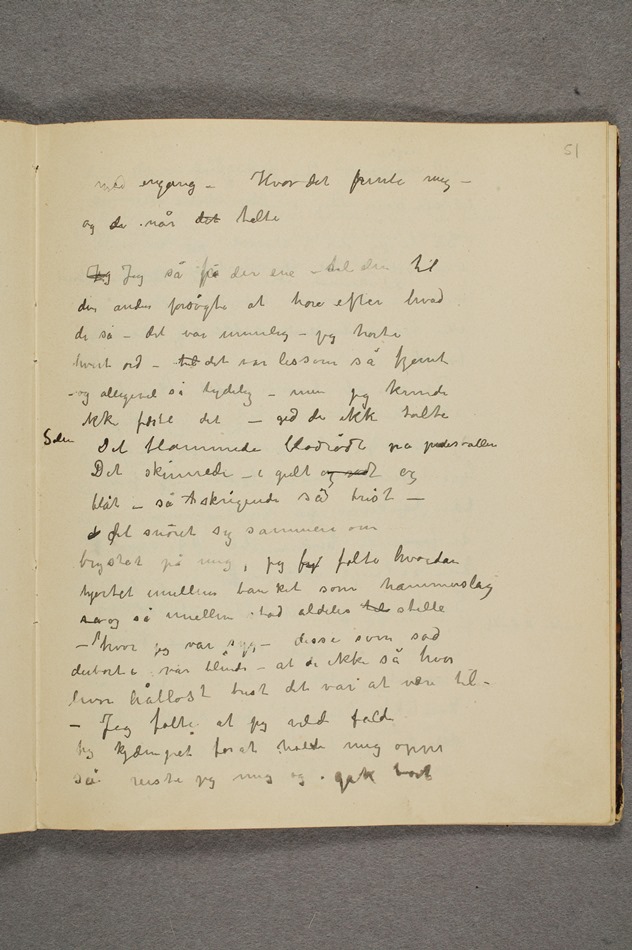 51
med engang – Hvor det pinte mig –
og de når det talte
Jeg Jeg så fra den ene – til den til
den anden forsøgte at høre efter hvad
de sa – det var umulig – jeg hørte
hvert ord – til det var lissom så fjernt
– og alligevel så tydelig – men jeg kunde
ikke fatte det – gid de ikke talte
Solen Det flammede blodrødt på
Det skinnede – i gult og rødt og
blåt – så skrigende så trist –
det snøret sig sammen om
brystet på mig, jeg følte hvordan
hjertet imellem banket som hammerslag
og så imellem stod aldeles stille
– hvor jeg var syg – disse som sad
derborte var blinde – at de ikke så hvor
hvor håbløst trist det var at være til –
– Jeg følte at jeg vilde falde
jeg kjæmpet forat holde mig oppe
så reiste jeg mig og gik bort